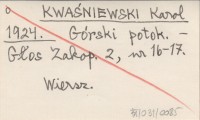 KWAŚNIEWSKI Karol
1924. Górski potok. –
Głos Zakop. 2, nr 16-17.
Wiersz.